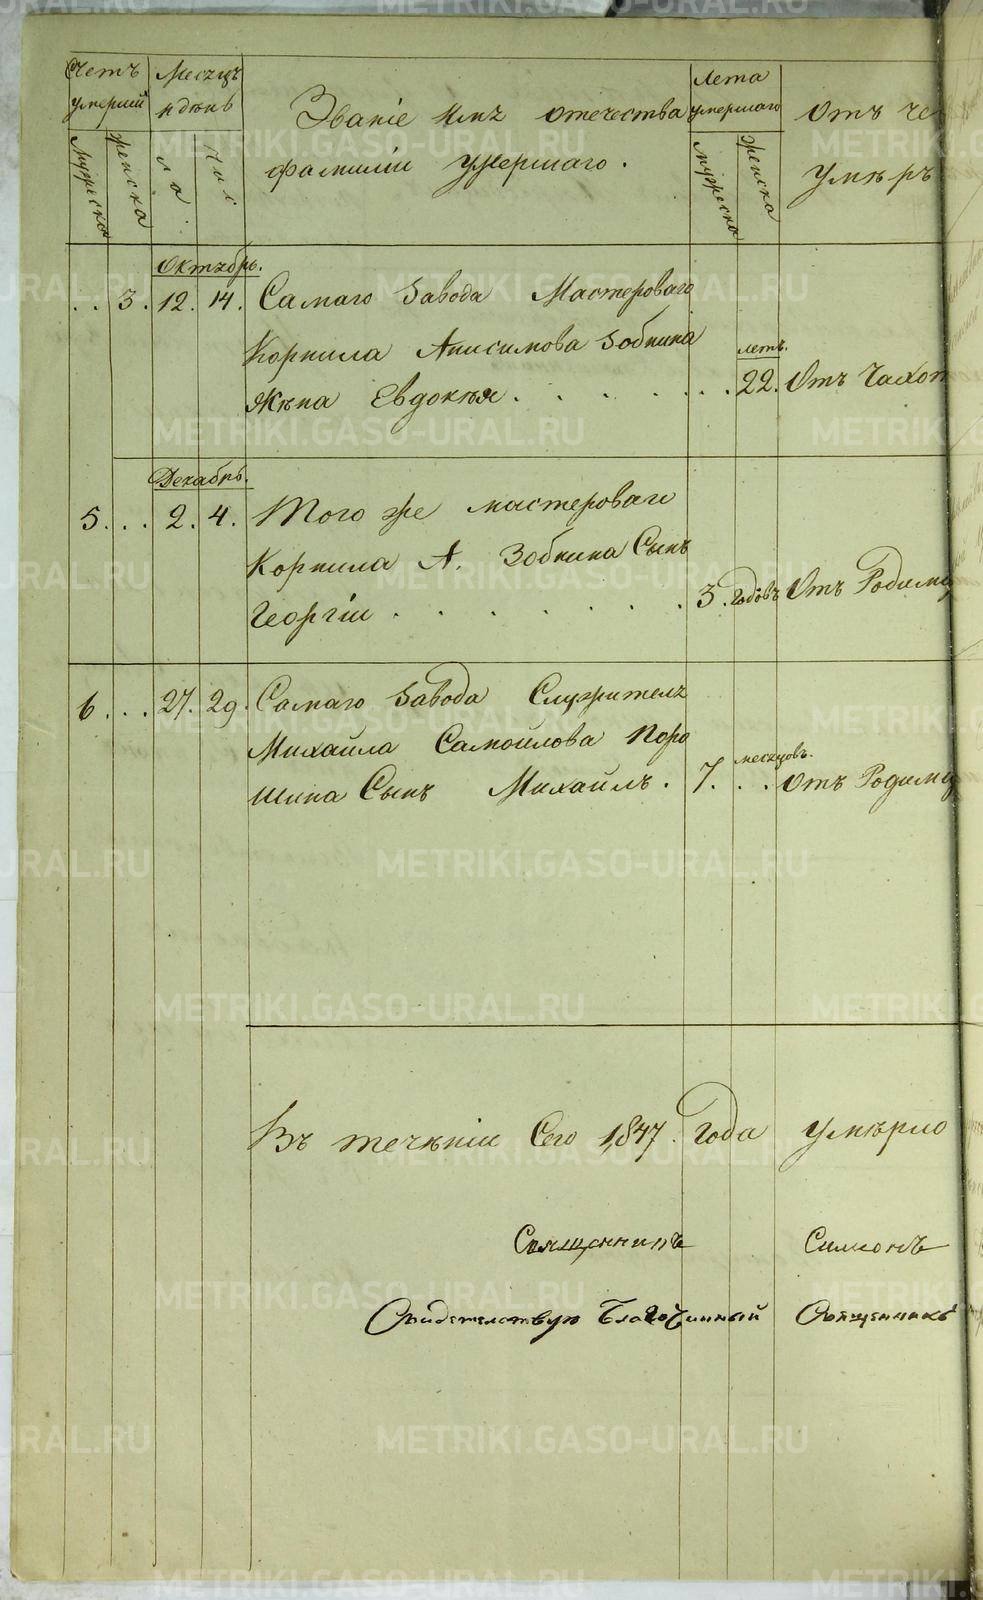 Счетъ умерший
Мужеска
женска
Месяцъ и день
ла
чис
Званіе имя отечества
фамиліи умершаго.
Лета умершаго
мужеска
женска
Отъ че
умеръ
Октябрь.
3. 12. 14. Самаго Завода Мастероваго
Корнила Анисимова Зобнина
Жена Евдокея . . . . . . . летъ. 22. Отъ Чахот
Декабрь.
5. . . 2. 4. Того же мастероваго
Корнила А. Зобнина Сынъ
Георгіи . . . . . . . . 3. годовъ Отъ Родимц
6. . . 27. 29. Самаго Завода Служителя
Михаила Самоилова Поро
шина Сынъ Михаилъ. 7. месяцовъ. Отъ Родимц
Въ теченіи Сего 1847. Года умѣрло
Священникъ Симеонъ
Свидетельствую Благочинный Священникъ
METRIKI.GASO-URAL.RU